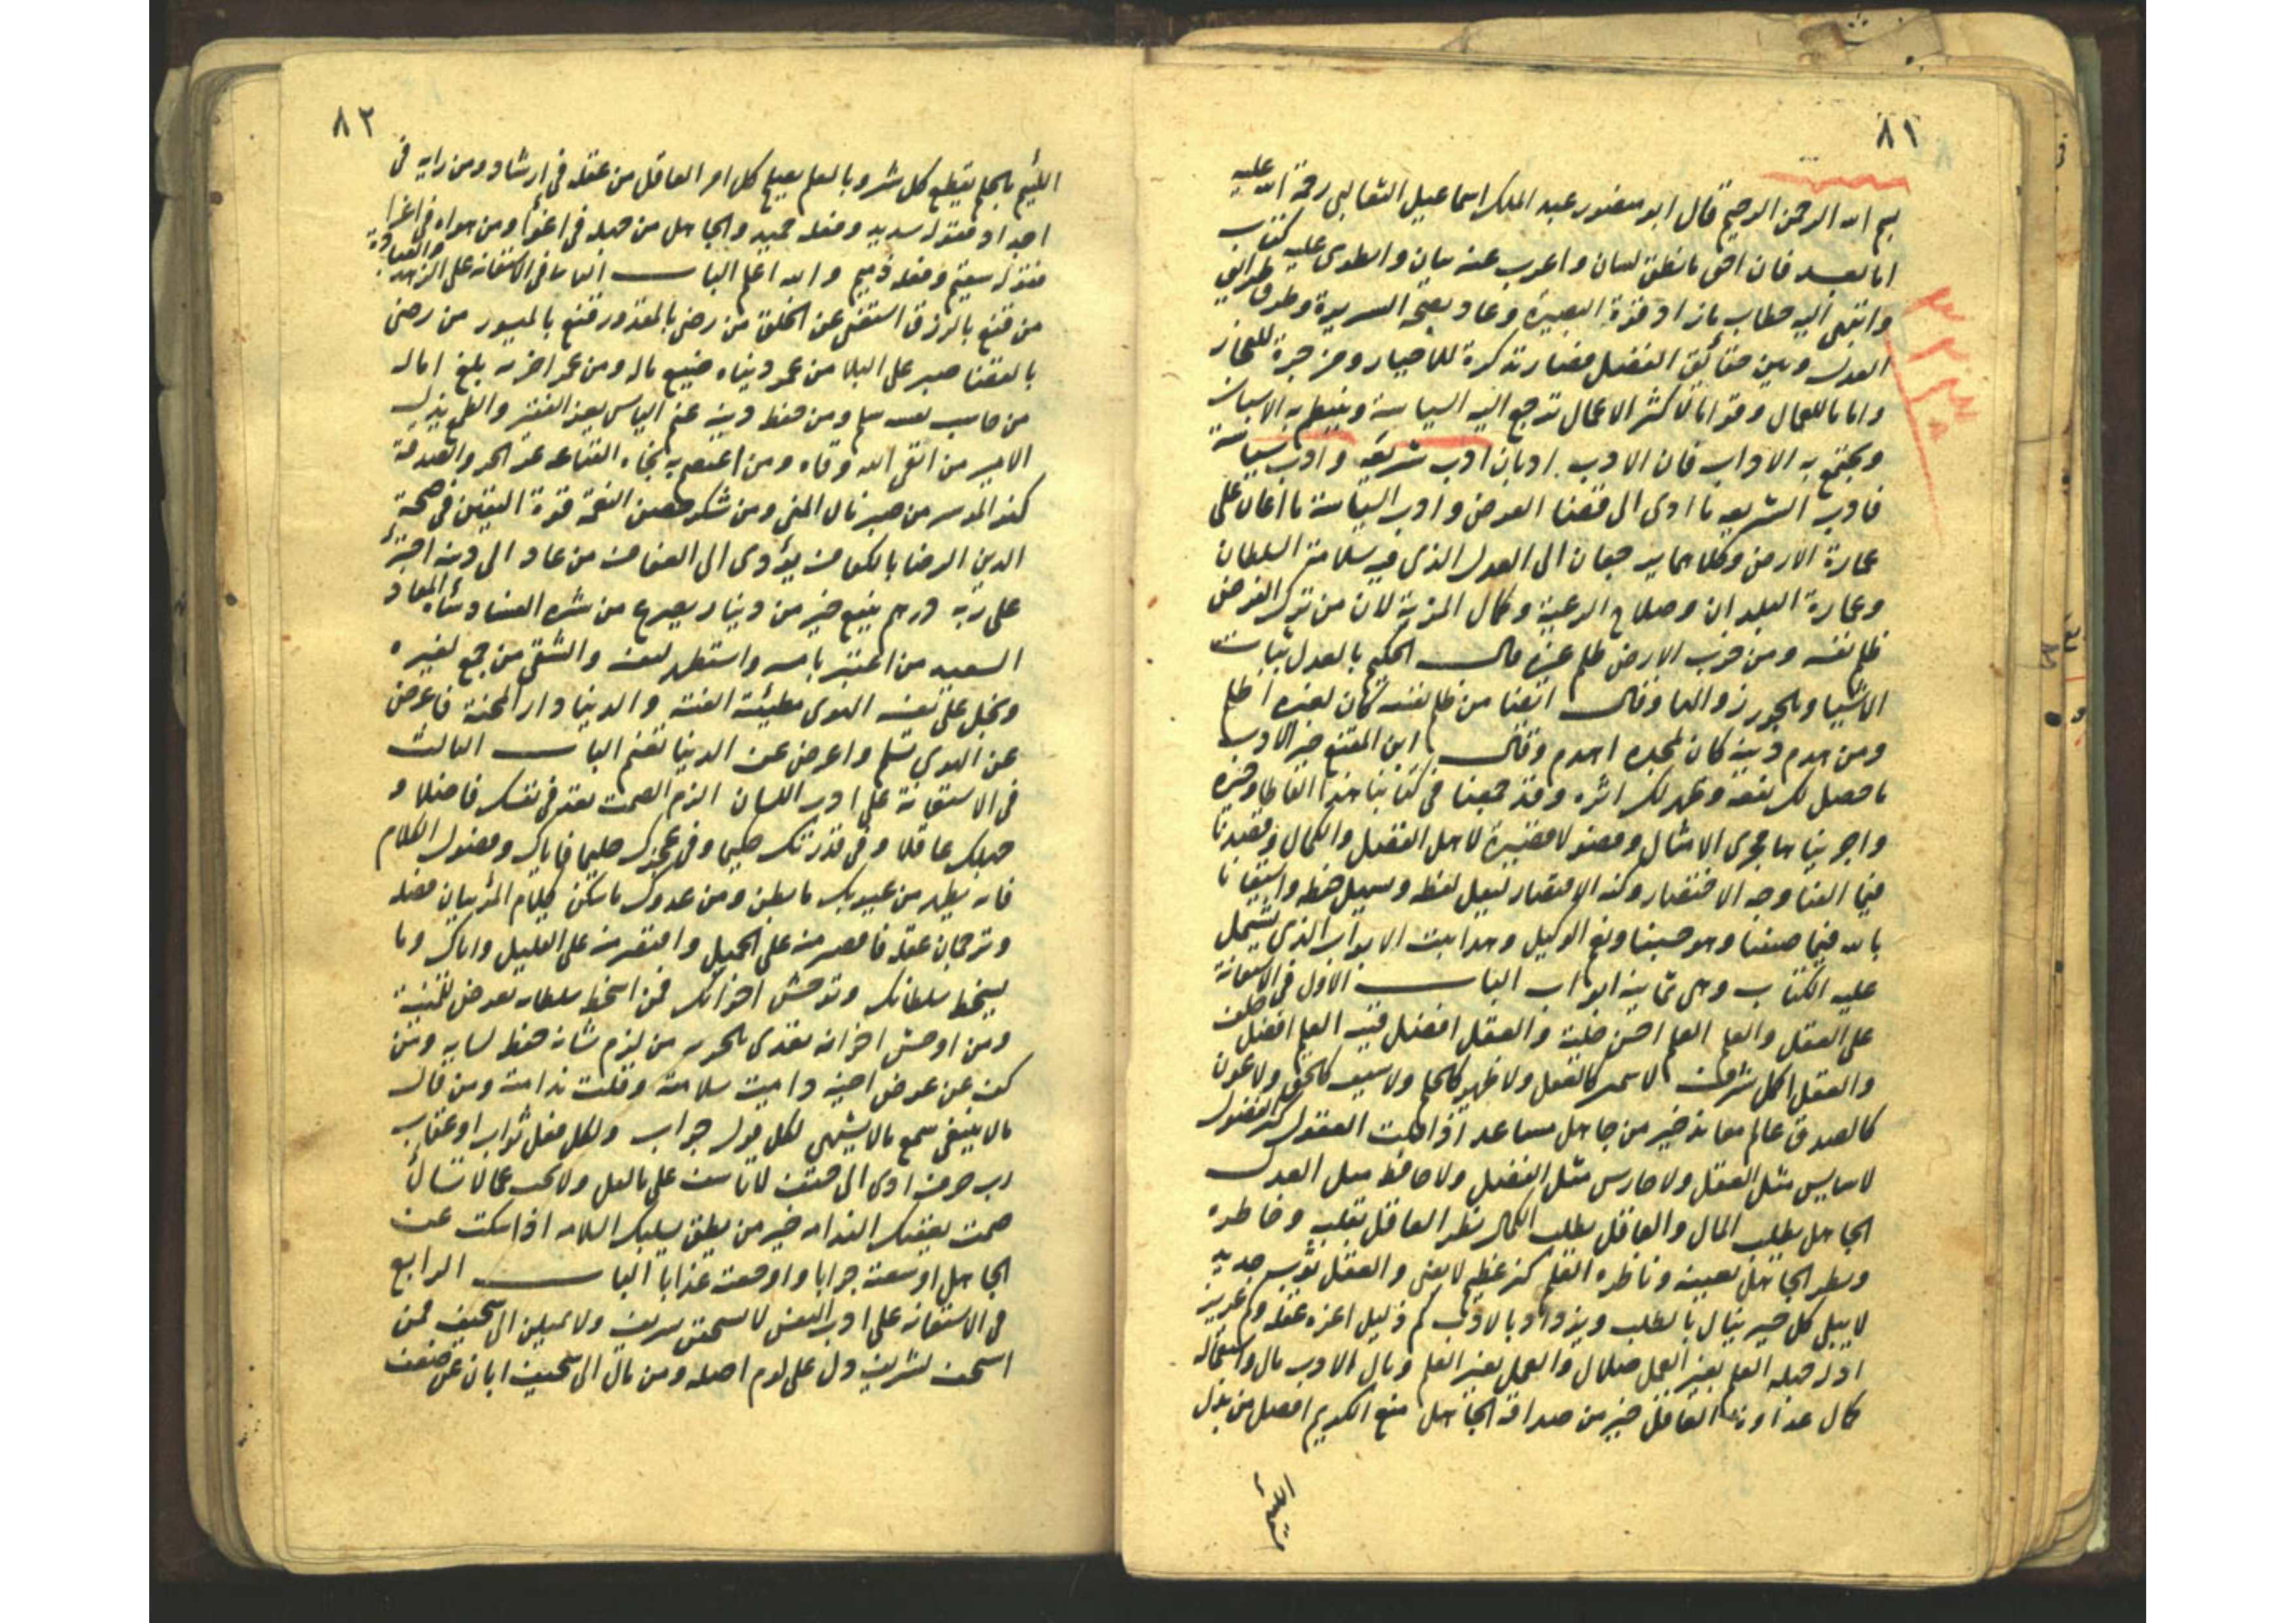 ٨١
بسم الله الرحمن الرحيم قال ابو منصور عبد الملك اسماعيل الثعالبي رحمة الله عليه
اما بعد فان احق ما نطق لسان واعرب عنه بيان وانطوى عليه كتاب
وانتهى اليه خطاب ما زاد قوة البصيرة وعاد بصحة السريرة وطرق طرائق
العدل وبين حقائق الفضل فصار تذكرة للاخيار ومزجرة
واماما للعمال وقواما لاكثر الاعمال ترجع اليه السياسة وينتظم به الاسباب
ويجتمع به الاداب فان الادب ادبان ادب شريعة وادب سياسة
فادب الشريعة ما ادى الى قضا الفرض وادب السياسة ما اعان على
عمارة الارض وكلاهما يرجعان الى العدل الذي فيه سلامة السلطان
وعمارة البلدان وصلاح الرعية وكمال المزية لان من ترك الفرض
ظلم نفسه ومن خرب الارض ظلم غيره قال الحكيم بالعدل ثبات
الاشيا وبالجور زوالها وقال ايضا من ظلم نفسه كان لغيره اظلم
ومن هدم دينه كان لمجده اهدم وقال ابن المقفع خير الادب
ما حصل لك نفعه وظهر لك اثره وقد جمعنا في كتابنا هذا الفاظا وجيزه
واجريناها مجرى الامثال وفصولا قصيرة لاهل الفضل والكمال وقصدنا
فيما الفنا وجه الاختصار وكنه الاقتصار ليقل لفظه ويسهل حفظه واستعنا
بالله فيما صنفنا وهو حسبنا ونعم الوكيل وهذا ثبت الابواب الذي يشتمل
عليه الكتاب وهي ثمانية ابواب الباب الاول في الاستعانة
على العقل والعلم العلم احسن حلية والعقل افضل قنية العلم افضل خلف
والعقل اكمل شرف لا سمير كالعلم ولا ظهير كالحلم ولا سيف كالحق ولا عون
كالصدق عالم معاند خير من جاهل مساعد اذا العقول كثر الفضول
لا سايس مثل العقل ولا حارس مثل الفضل ولا حافظ مثل العدل
الجاهل يطلب المال والعاقل يطلب الكمال نظر العاقل بقلبه وخاطره
ونظر الجاهل بعينه وناظره العلم كنز عظيم لا يفنى والعقل ثوب جديد
لا يبلى كل خير ينال بالطلب ويزداد بالادب كم ذليل اعزه عقله وكم عزيز
اذله جهله العلم بغير العمل ضلال والعمل بغير العلم وبال الادب مال واستعماله
كمال عداوة العاقل خير من صداقة الجاهل منع الكريم افضل من بذل
اللئيم
٨٢
اللئيم بالحلم يقطع كل شر وبالعلم يصلح كل امر العاقل من عقله في ارشاد ومن رايه في
امداد فقوله سديد وفعله حميد والجاهل من جهله في اغوا ومن هواه في اغرا
فقوله سقيم وفعله ذميم والله اعلم الباب الثاني في الاستعانة على الزهد والعبادة
من قنع بالرزق استغنى عن الخلق من رضي بالمقدور قنع بالميسور من رضي
بالقضا صبر على البلا من عمر دنياه ضيع ماله ومن عمر اخرته بلغ اماله
من حاسب نفسه سلم ومن حفظ دينه غنم الياس يعز الفقير والطمع يذل
الامير من اتقى الله وقاه ومن اعتصم به نجاه القناعة عز الحر والصدقة
كنز الموسر من صبر نال المنى ومن شكر حصن النعمة قوة اليقين في صحة
الدين الرضا بالكفاف يؤدي الى العفاف من عاد الى دينه اجترأ
على ربه درهم ينفع خير من دينار يصرع من شره الفساد نساه المعاد
السعيد من اعتبر بامسه واستظهر لنفسه والشقي من جمع لغيره
وبخل على نفسه الهوى مطيئة الفتنة والدنيا دار المحنة فاعرض
عن الهوى تسلم واعرض عن الدنيا تغنم الباب الثالث
في الاستعانة على ادب اللسان الزم الصمت تعد في نفسك فاضلا و
جهلك عاقلا وفي قدرتك حليما وفي عجزك حليما فاياك وفضول الكلام
فانه يظهر من عيوبك ما بطن ومن عدوك ما سكن كلام المرء بيان فضله
وترجمان عقله فاقصره على الجميل واقتصر منه على القليل واياك وما
يسخط سلطانك وتوحش اخوانك فمن اسخط سلطانه تعرض للمنية
ومن اوحش اخوانه تعدى بالحرية من لزم شانه حفظ لسانه ومن
كف عن عرض اخيه دامت سلامته وقلت ندامته ومن قال
ما لا ينبغي سمع ما لا يشتهي لكل قول جواب ولكل فعل ثواب او عقاب
رب حرف ادى الى حتف لا تاسف على ما لم يقل ولا تجب عما لا تسال
صمت يعقبك الندامة خير من نطق يسلبك السلامة اذا سكت عن
الجاهل اوسعته جوابا واوجعته عذابا الباب الرابع
في الاستعانة على ادب النفس لا تسخفن بشريف ولا تميلن الى سخيف فمن
استخف بشريف دل على لوم اصله ومن مال الى سخيف ابان عن ضعف